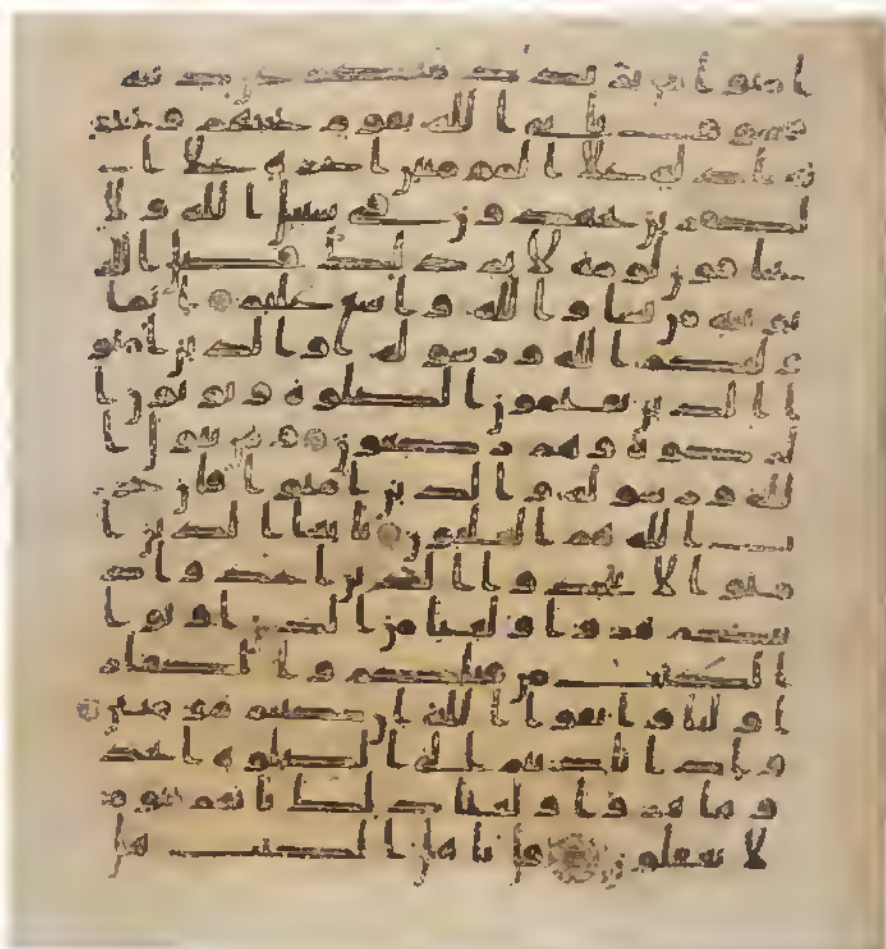 امنوا من يرتد منكم عن دينه
فسوف ياتي الله بقوم يحبهم ويحبو
نه اذلة على المومنين اعزة على ا
لكفرين يجهدون في سبيل الله ولا
يخافون لومة لائم ذلك فضل الله
يوتيه من يشا والله وسع عليم انما
وليكم الله ورسوله والذين امنو
ا الذين يقيمون الصلوة ويوتون ا
لزكوة وهم ركعون ومن يتول ا
لله ورسوله والذين امنوا فان حز
ب الله هم الغلبون يايها الذين ا
منوا لا تتخذوا الذين اتخذوا د
ينكم هزوا ولعبا من الذين اوتوا
الكتب من قبلكم والكفار
اوليا واتقوا الله ان كنتم مومنين
واذا ناديتم الى الصلوة اتخذ
وها هزوا ولعبا ذلك بانهم قوم
لا يعقلون قل ياهل الكتب هل